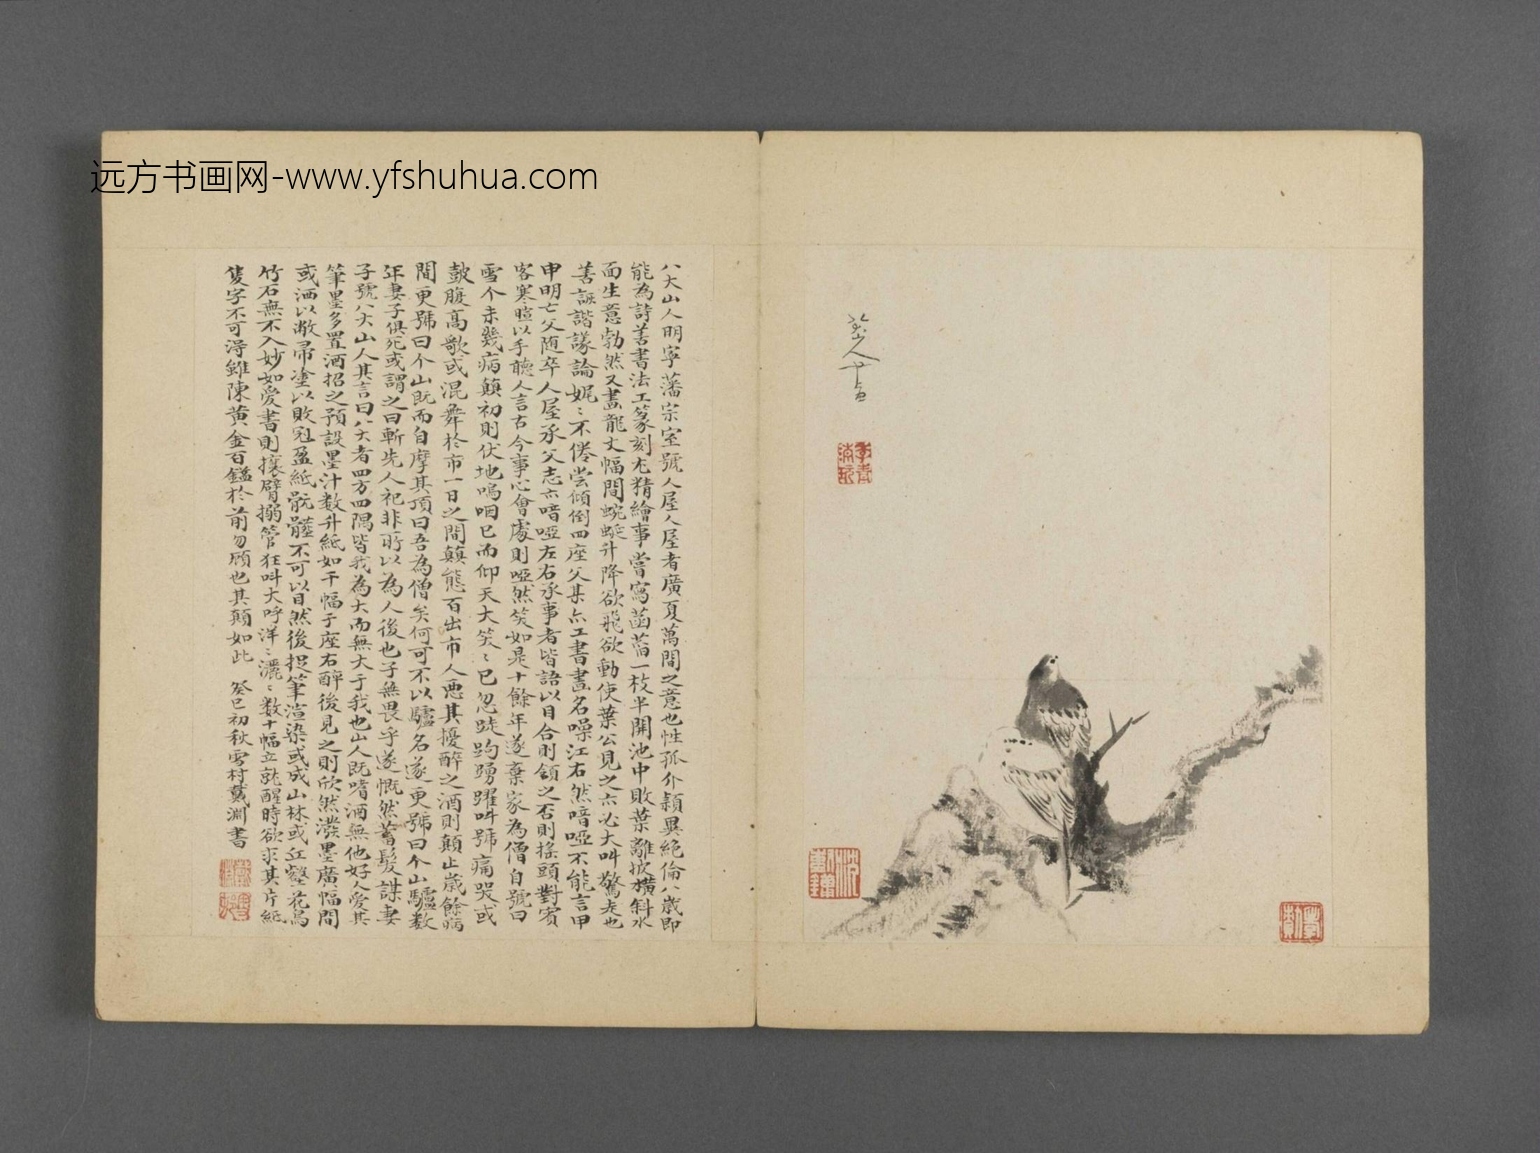 远方书画网-www.yfshuhua.com
八大山人
八大山人明寧藩宗室號人屋人屋者廣夏萬間之意也性孤介穎異絕倫八歲即
能為詩善書法工篆刻尤精繪事嘗寫菡萏一枝半開池中敗葉離披橫斜水
面生意勃然又畫龍丈幅間蜿蜒升降欲飛欲動使葉公見之亦必大叫驚走也
善詼諧議論娓〻不倦嘗傾倒四座父某亦工書畫名噪江右然喑啞不能言甲
申明亡父随卒人屋承父志亦喑啞左右承事者皆語以目合則頷之否則搖頭對賓
客寒暄以手聽人言古今事心會處則啞然笑如是十餘年遂棄家為僧自號曰
雪个未幾病顛初則伏地嗚咽已而仰天大笑〻已忽跿跔踴躍叫號痛哭或
鼓腹高歌或混舞於市一日之間顛態百出市人惡其擾醉之酒則顛止歲餘病
間更號曰个山既而自摩其頂曰吾為僧矣何可不以驢名遂更號曰个山驢数
年妻子俱死或謂之曰斬先人祀非所以為人後也子無畏乎遂慨然蓄髮謀妻
子號八大山人其言曰八大者四方四隅皆我為大而無大于我也山人既嗜酒無他好人愛其
筆墨多置酒招之預設墨汁数升紙如干幅于座右醉後見之則欣然潑墨廣幅間
或洒以敝帚塗以敗冠盈紙骯髒不可以目然後捉筆渲染或成山林或丘壑花鳥
竹石無不入妙如愛書則攘臂搦管狂叫大呼洋〻灑〻数十幅立就醒時欲求其片紙
隻字不可得雖陳黃金百鎰於前勿顧也其顛如此 癸巳初秋雪村戴淵書